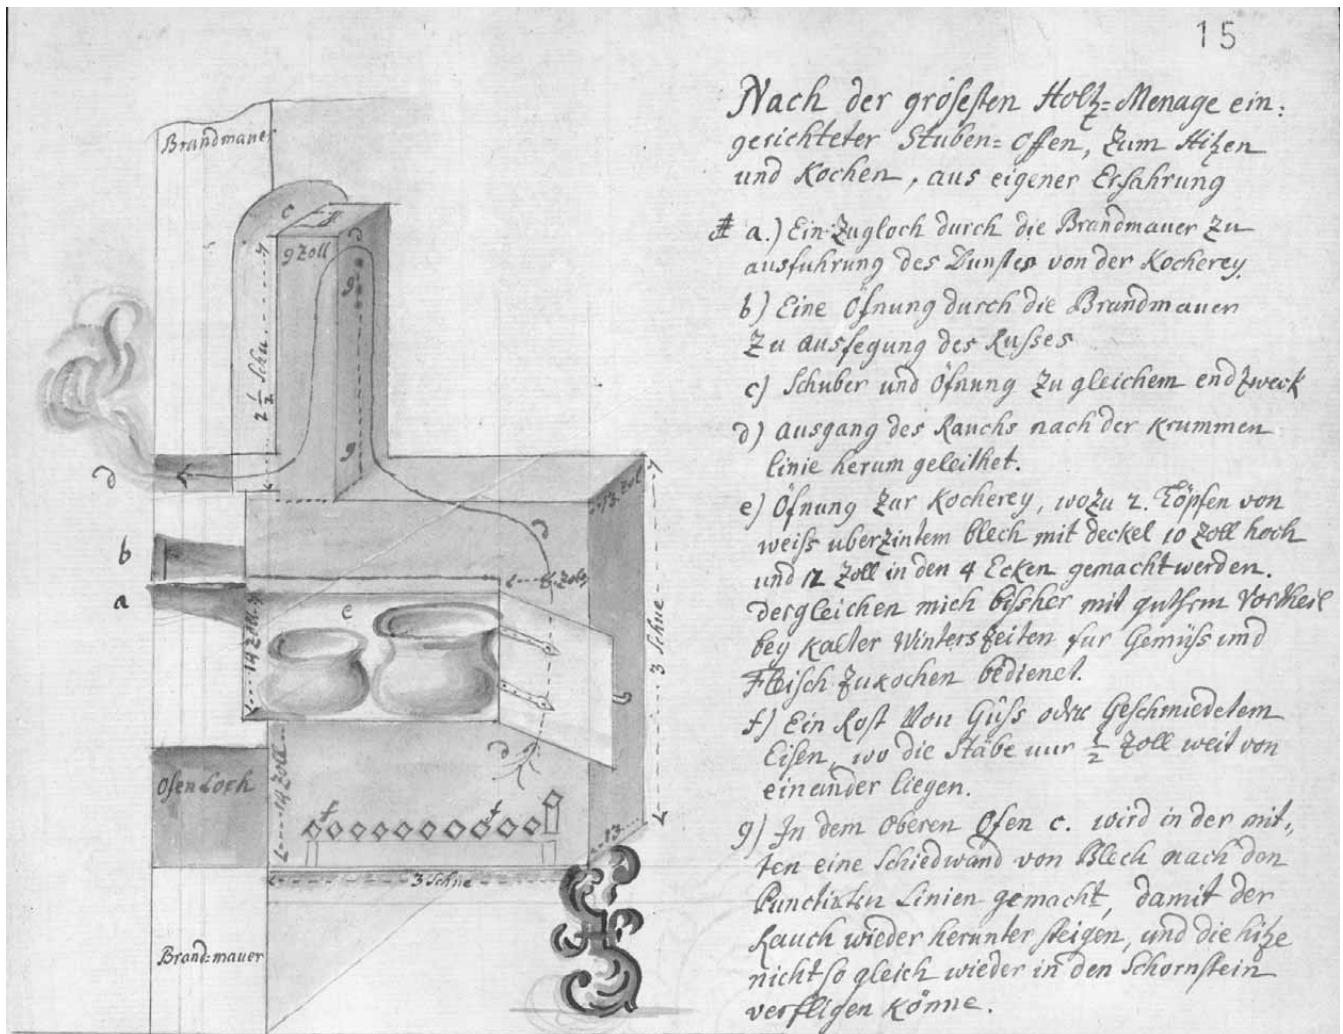 15
Nach der grösesten Holtz=Menage ein:
gerichteter Stuben=Offen, Zum Hitzen
und Kochen, aus eigener Erfahrung
a.) Ein Zugloch durch die Brandmauer Zu
ausfuhrung des Dunstes von der Kocherey.
b) Eine Öfnung durch die Brandmauer
Zu ausfegung des Russes
c) Schuber und Öfnung Zu gleichem endzweck
d) ausgang des Rauchs nach der krummen
linie herum geleithet.
e) Öfnung zur Kocherey, wozu 2. Töpfen von
weiss uberzintem blech mit deckel 10 Zoll hoch
und 12 Zoll in den 4 Ecken gemacht werden.
dergleichen mich bissher mit Vortheil
bey kalter Winters Zeiten fur Gemüss und
Fleisch zu kochen bedienet.
f) Ein Rost Von Guss oder Geschmiedetem
Eisen, wo die Stäbe nur ½ Zoll weit von
einander liegen.
g) In dem Oberen Ofen c. wird in der mit„
ten eine Schiedwand von Blech nach den
Punctirten Linien gemacht, damit der
Rauch wieder herunter steigen, und die hitze
nicht so gleich wieder in den Schornstein
verfligen könne.
Brandmauer
c
9 Zoll
d
g
2 ½ Schu
g
d
b
a
13. Zol
d
Zoll
e
14 Zoll
3 Schue
d
Ofen Loch
14 Zoll
f
f
13
3 Schue
Brand=mauer